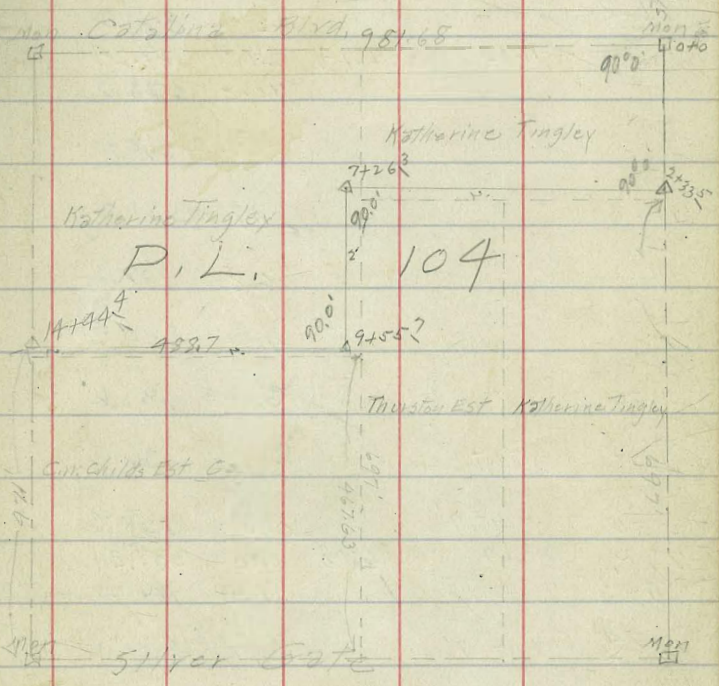 Mon Catalina Blvd. 981.68 Mon
0+0
90°0'
Katherine Tingley
7+26.3
90°0' 2+33.5
Katherine Tingley
90.0'
2'
P. L. 104
14+44.4
488.7 90.0' 9+55.7
Thurston Est Katherine Tingley
Childs Est Co
697'
467.63
697
Mon Silver Gate Mon